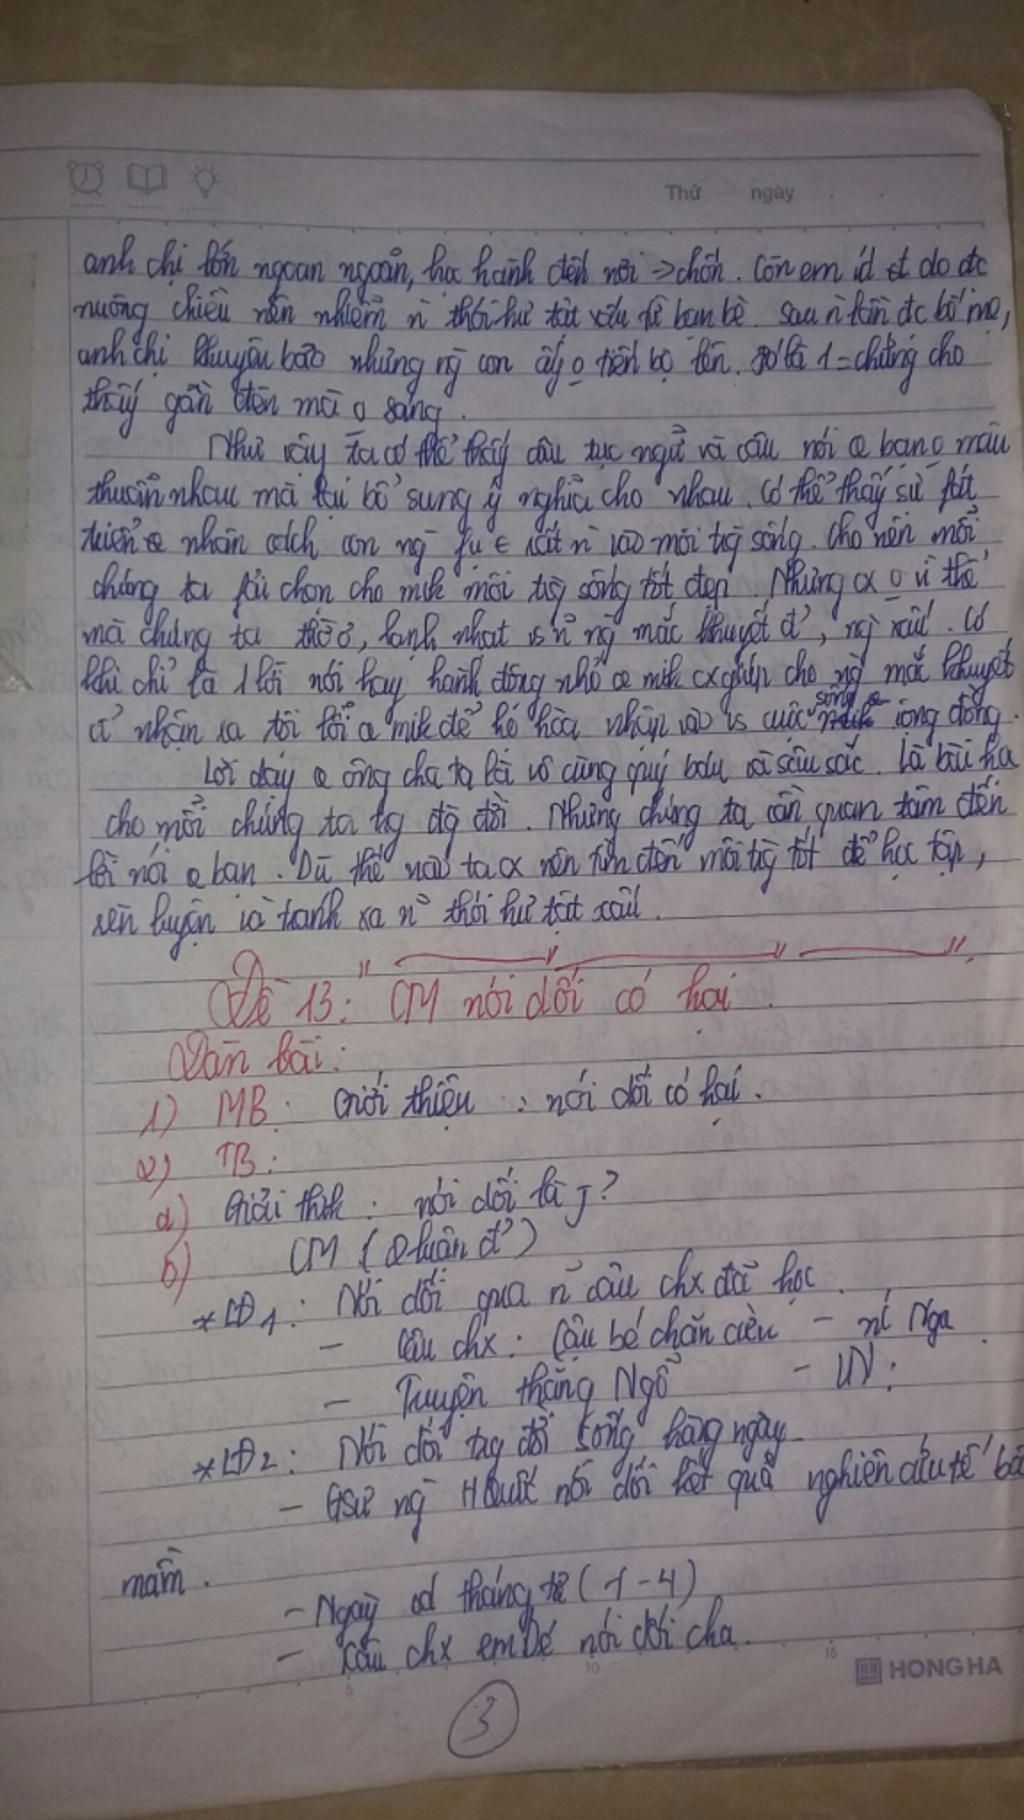 Thứ ngày
anh chị lớn ngoan ngoãn, học hành đến nơi -> chốn. Còn em út do đc
nuông chiều nên nhiễm n~ thói hư tật xấu từ bạn bè. Sau n~ lần đc bố mẹ,
anh chị khuyên bảo nhưng ng con ấy o tiến bộ lên. Đó là 1 = chứng cho
thấy gần đèn mà o sáng.
Như vậy ta có thể thấy câu tục ngữ và câu nói bạn o mâu
thuẫn nhau mà lại bổ sung ý nghĩa cho nhau. Có thể thấy sự fát
triển nhân cách con ng fụ € rất n` vào môi tr`g sống. Cho nên mỗi
chúng ta fải chọn cho mik môi tr`g sống tốt đẹp. Nhưng cx o vì thế
mà chúng ta thờ ơ, lạnh nhạt vs n~ ng mắc khuyết đ', ng xấu. Có
khi chỉ là 1 lời nói hay hành động nhỏ mik cx giúp cho ng mắc khuyết
đ' nhận ra tội lỗi mik để hòa nhập vào vs cuộc sống cộng đồng.
Lời dạy ông cha ta là vô cùng quý báu và sâu sắc. Là bài học
cho mỗi chúng ta tg đg đời. Nhưng chúng ta cần quan tâm đến
lời nói bạn. Dù thế nào ta cx nên tìm đến môi tr`g tốt để học tập,
rèn luyện và tránh xa n~ thói hư tật xấu.
Đề 13: CM nói dối có hại.
Dàn bài:
1) MB: Giới thiệu: nói dối có hại.
2) TB:
a) Giải thik: nói dối là j?
b) CM (2 luận đ')
* LĐ1: Nói dối qua n~ câu chx đã học.
- Câu chx: Cậu bé chăn cừu - nc Nga
- Truyện thằng Ngố - VN.
* LĐ2: Nói dối tg đời sống hàng ngày
- Gsư ng H Quốc nói dối kết quả nghiên cứu tế bào
mầm.
- Ngày cá tháng tư (1-4)
- Câu chx em bé nói dối cha.
HONG HA
3